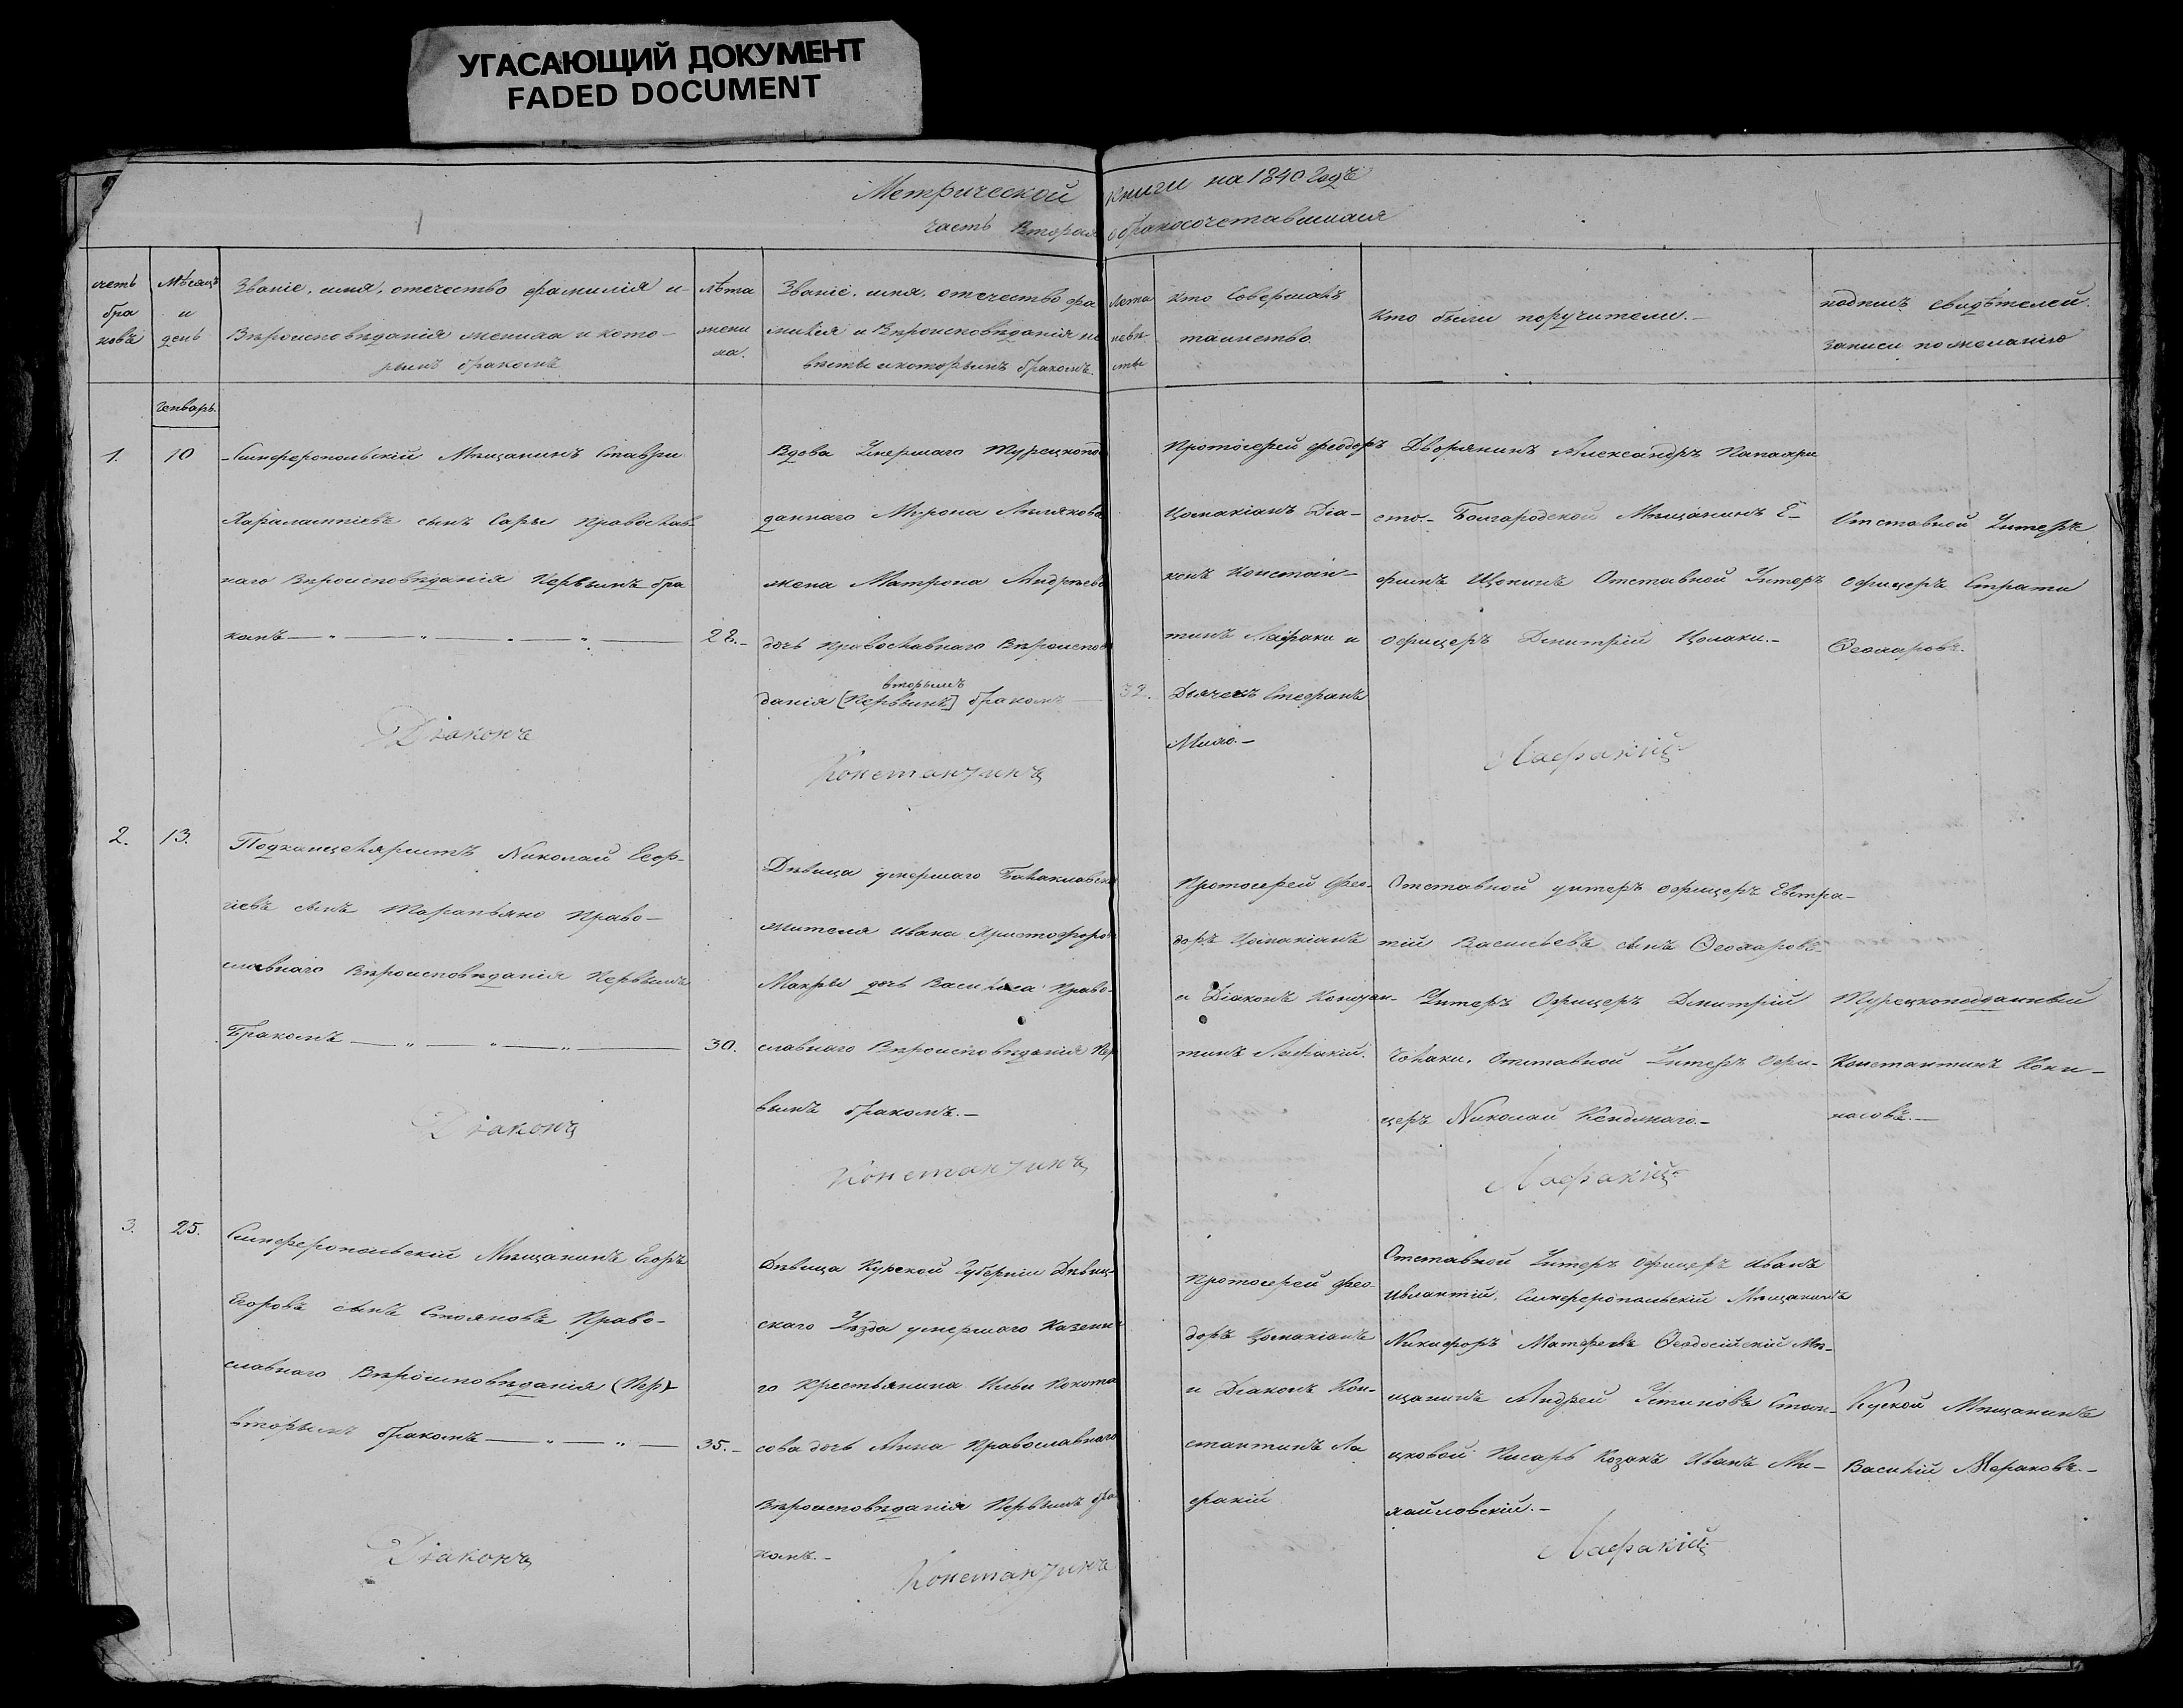 УГАСАЮЩИЙ ДОКУМЕНТ
FADED DOCUMENT
Метрической книги на 1840 годъ
часть вторая о бракосочетавшихся
счетъ
бра
ковъ
Мѣсяцъ
и
день
Званіе, имя, отечество фамилія и
Вѣроисповѣданія жениха и кото-
рымъ бракомъ
лѣта
жени
ха.
Званіе, имя, отечество фа
милія и Вѣроисповѣданія не
вѣсты и которымъ бракомъ.
Лѣта
невѣ
сты
Кто Совершалъ
таинство
Кто были поручители.-
подпись свидѣтелей
записи по желанію
Генварь.
1.
10
Симферопольскій Мѣщанинъ Ставри
Харалампіевъ сынъ Сары православ
наго Вѣроисповѣданія Первымъ бра
комъ
28.-
Вдова Умершаго Турецкопод
даннаго Мирона
жена Матрона Андрѣева
дочь православнаго Вѣроиспов
вторымъ
данія [Первымъ] бракомъ
32.
Протоіерей Феодоръ
Цомакіанъ Діа-
конъ Констан-
тинъ Лафаки и
Дьячекъ Стефанъ
Дворянинъ Александръ Папаяри
сто.- Болгородской Мѣщанинъ Е-
фимъ Щекинъ Отставной Унтеръ
офицеръ Дмитрій Цолаки.-
Отставной Унтеръ
Офицеръ Страти
Ѳеохаровъ.
Діаконъ
Константинъ
Лафакій
2.
13.
Подканцеляристъ Николай Егор-
гіевъ сынъ право-
славнаго Вѣроисповѣданія Первымъ
Бракомъ
30.
Дѣвица умершаго Балаклавска
жителя Ивана Христофоров
Макры дочь Василиса Право-
славнаго Вѣроисповѣданія Пер
вымъ бракомъ.-
Протоіерей Фео-
доръ Цомакіанъ
и Діаконъ Констан-
тинъ Лафакій.
Отставной унтеръ офицеръ Евстра-
тій Васильевъ сынъ Ѳеохаровъ
Унтеръ Офицеръ Дмитрій
Чолаки. Отставной Унтеръ Офи-
церъ Николай
Турецкоподданный
Константинъ Кони-
насовъ.-
Діаконъ
Константинъ
Лафакій
3.
25.
Симферопольскій Мѣщанинъ Егоръ
Егоровъ сынъ Стояновъ Право-
славнаго Вѣроисповѣданія (Пер)
вторымъ бракомъ
35.-
Дѣвица Курской Губерніи
скаго Уѣзда умершаго Казенн
го крестьянина Ильи
сова дочь Анна Православнаго
Вѣроисповѣданія Первымъ бра
комъ.-
Протоіерей Фео
доръ Цомакіанъ
и Діаконъ Кон-
стантинъ Ла
факій
Отставной Унтеръ Офицеръ Иванъ
Симферопольскій Мѣщанинъ
Никифоръ Матфеевъ Ѳеодосійскій Мѣ-
щанинъ Андрей Устиновъ
Писарь Козакъ Иванъ Ми-
хайловскій.-
Мѣщанинъ
Василій
Діаконъ
Константинъ
Лафакій